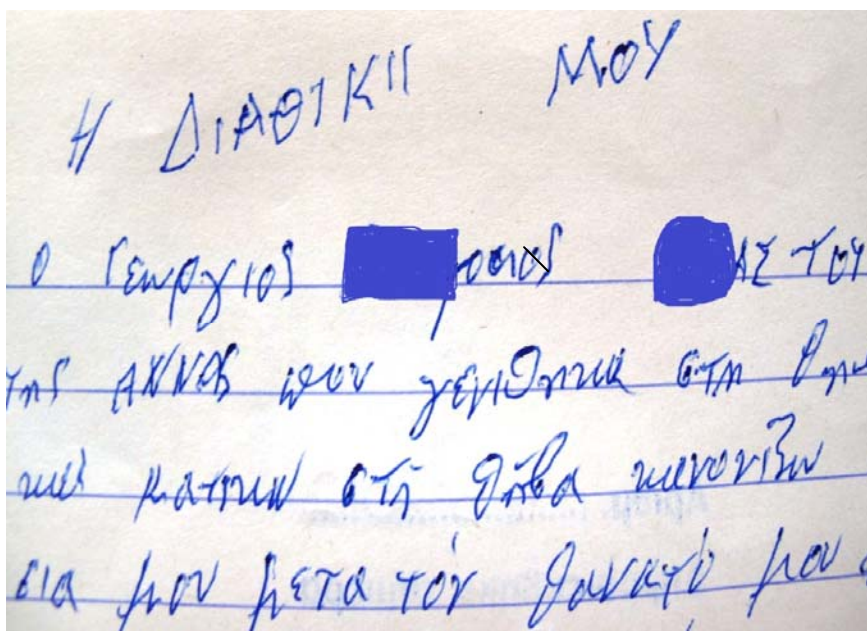 Η ΔΙΑΘΙΚΗ ΜΟΥ
Ο Γεωργιος ΑΣ ΤΟΥ
της ΑΝΝΑΣ που γενιθηκα στη
και κατικω στη Θηβα κανονιζω
σια μου μετα τον θανατό μου